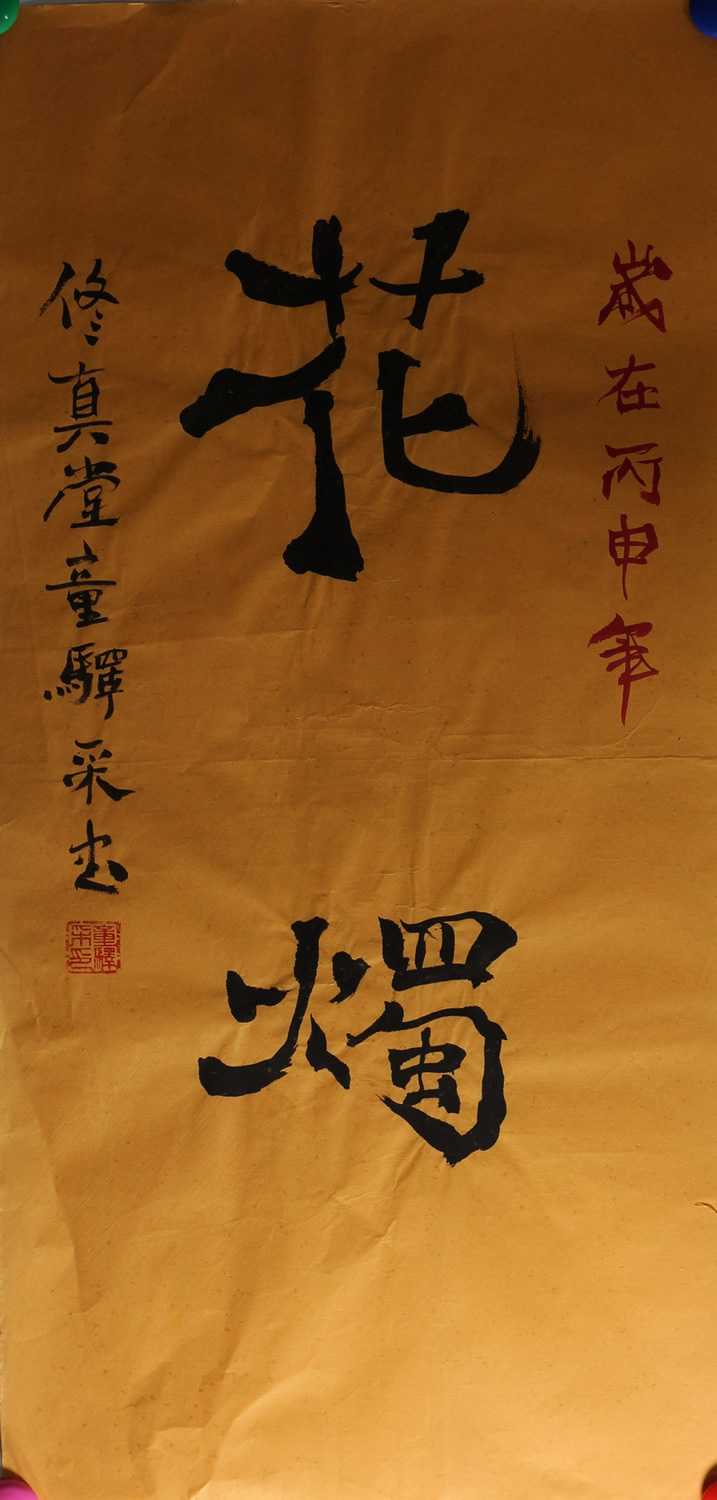 歲在丙申年
花燭
修真堂童驛采书
童驛采印